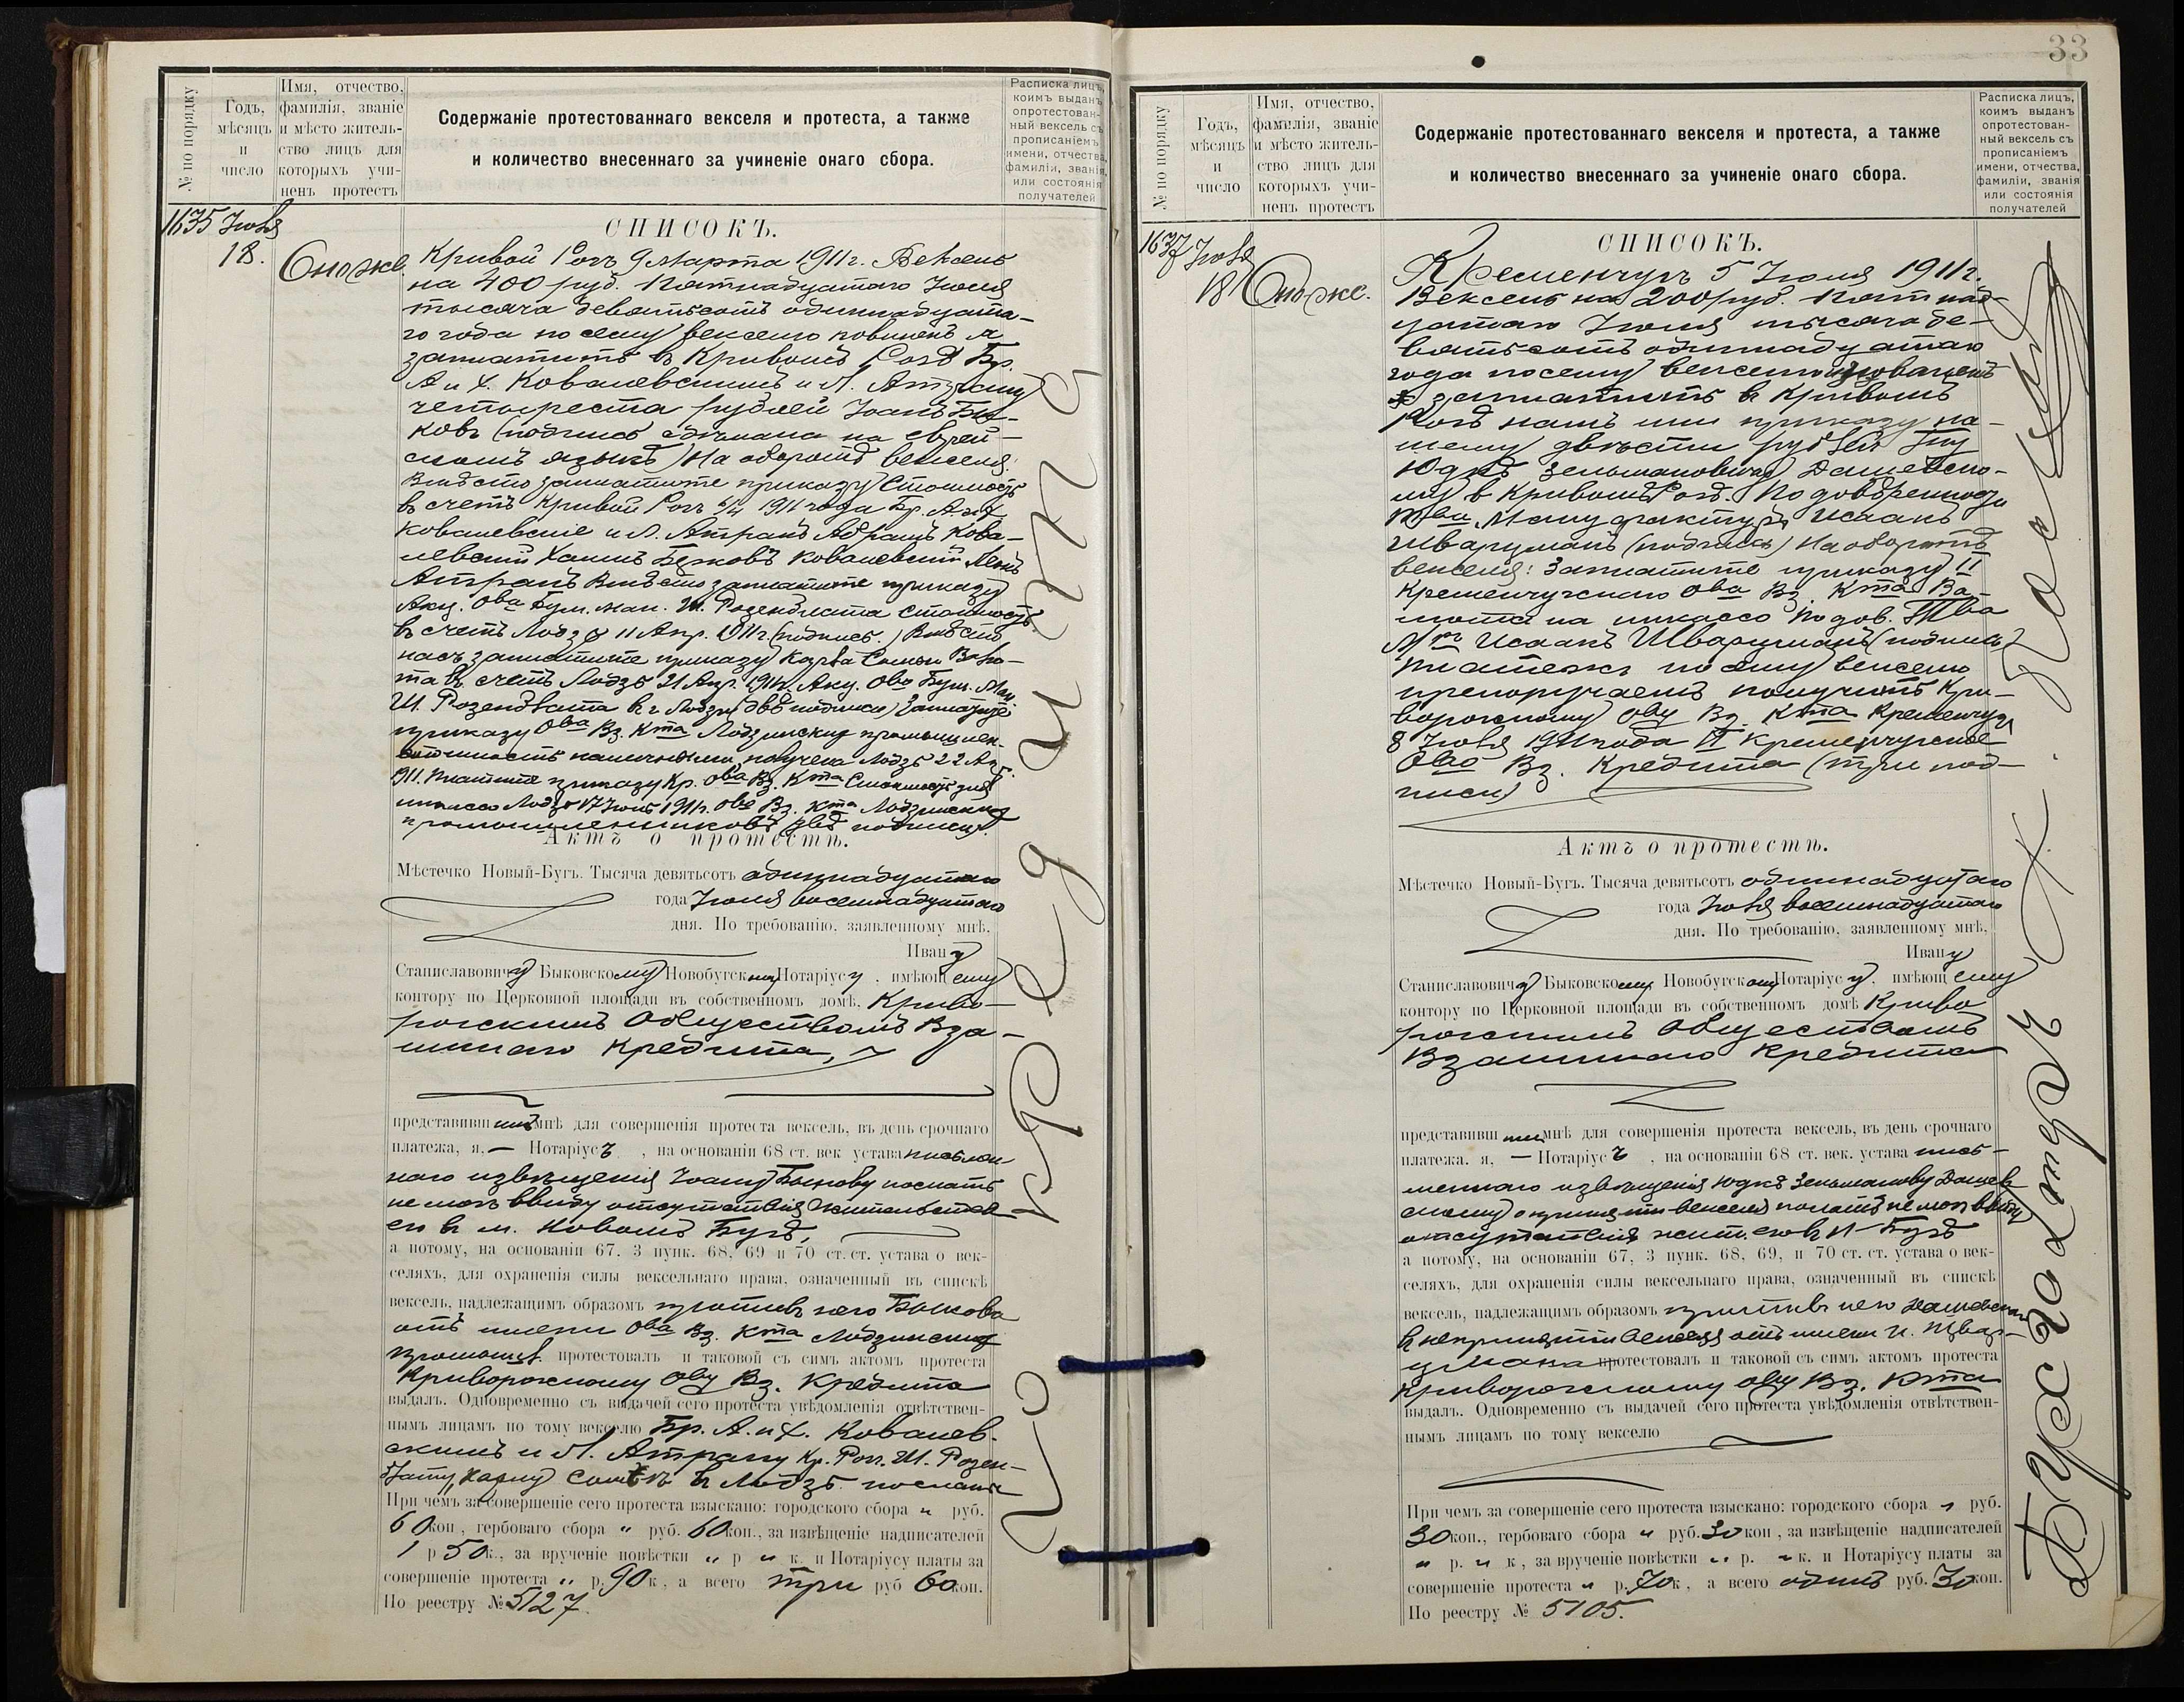 № по порядку
Годъ,
мѣсяцъ
и
число
Имя, отчество,
фамилія, званіе
и мѣсто житель-
ство лицъ для
которыхъ учи-
ненъ протестъ
Содержаніе протестованнаго векселя и протеста, а также
и количество внесеннаго за учиненіе онаго сбора.
Расписка лицъ,
коимъ выданъ
опротестован-
ный вексель съ
прописаніемъ
имени, отчества,
фамиліи, званія,
или состоянія
получателей
1635 Іюля
18.
Оно же.
СПИСОКЪ.
Кривой Рогъ 9 Марта 1911 г. Вексель
на 400 руб. Пятнадцатаго Іюля
тысяча девятьсотъ одиннадцата-
го года по сему векселю повиненъ я
заплатить въ Кривомъ Рогѣ Бр.
А и Х. Ковалевскимъ и Л. Атрану
четыреста рублей Іоанъ Бы-
ковъ (подпись сдѣлана на еврей-
скомъ языкѣ) На оборотѣ векселя:
Вмѣсто заплатите приказу Стоимость
въ счетъ Кривой Рогъ 6/4 1911 года Бр. А и Х
Ковалевскіе и Л. Атранъ Абрамъ Кова-
левскій Хаимъ Берковъ Ковалевскій Леонъ
Атранъ Вмѣсто заплатите приказу
Акц. Ова Бум. Ман. Ш. Розенблата Стоимость
въ счетъ Лодзь 11 Апр. 1911 г. (подпись.) Вмѣсто
насъ заплатите приказу
та въ счетъ Лодзь 21 Апр. 1911 г. Акц. Ово Бум. Ман.
Ш. Розенблата въ г Лодзи (двѣ подписи) Заплатите
приказу Ова Вз. Кта Лодзинскихъ промышлен.
стоимость наличными получена Лодзь 22 Ап.
1911. Платите приказу Кр. Ова Вз. Кта Стоимость для
инкассо Лодзь 17 Іюня 1911 г. Ово Вз. Кта Лодзинскихъ
промышленниковъ двѣ подписи.
Актъ о протестѣ.
Мѣстечко Новый-Бугъ. Тысяча девятьсотъ одиннадцатаго
года Іюля восемнадцатаго
дня. По требованію, заявленному мнѣ,
Ивану
Станиславовичу Быковскому Новобугскому Нотаріусу, имѣющему
контору по Церковной площади въ собственномъ домѣ, Криво-
рогскимъ Обществомъ Вза-
имнаго Кредита,
представившимъ мнѣ для совершенія протеста вексель, въ день срочнаго
платежа, я, — Нотаріусъ, на основаніи 68 ст. век устава письмен-
наго извѣщенія Іоану Быкову послать
не могъ ввиду отсутствія жительства
его въ м. Новомъ Бугѣ,
а потому, на основаніи 67. 3 пунк. 68, 69 и 70 ст. ст. устава о век-
селяхъ, для охраненія силы вексельнаго права, означенный въ спискѣ
вексель, надлежащимъ образомъ противъ него Быкова
отъ имени Ова Вз. Кта Лодзинскихъ
промышл. протестовалъ и таковой съ симъ актомъ протеста
Криворожскому Ову Вз. Кредита
выдалъ. Одновременно съ выдачей сего протеста увѣдомленія отвѣтствен-
нымъ лицамъ по тому векселю Бр. А. и Х. Ковалев-
скимъ и Л. Атрану Кр. Рогъ. Ш. Розен-
блату, въ Лодзь посланы
При чемъ за совершеніе сего протеста взыскано: городского сбора „ руб.
60 коп, гербоваго сбора „ руб. 60 коп., за извѣщеніе надписателей
1 р 50 к., за врученіе повѣстки „ р „ к. и Нотаріусу платы за
совершеніе протеста „ р. 90 к, а всего три руб 60 коп.
По реестру № 5127.
33
№ по порядку
Годъ,
мѣсяцъ
и
число
Имя, отчество,
фамилія, званіе
и мѣсто житель-
ство лицъ для
которыхъ учи-
ненъ протестъ
Содержаніе протестованнаго векселя и протеста, а также
и количество внесеннаго за учиненіе онаго сбора.
Расписка лицъ,
коимъ выданъ
опротестован-
ный вексель съ
прописаніемъ
имени, отчества,
фамиліи, званія
или состоянія
получателей
1637 Іюля
18 Оно же.
СПИСОКЪ.
Кременчугъ 5 Іюля 1911 г.
Вексель на 200 руб. Пятнад-
цатаго Іюля тысяча де-
вятьсотъ одиннадцатаго
года по сему векселю
заплатить въ Кривомъ
Рогѣ намъ или приказу на-
шему двѣсти рублей Гну
Юдкѣ Зельмановичу Дашевско-
му въ Кривомъ Рогѣ. По довѣренности
Тва Мануфактуръ Исаакъ
Шварцманъ (подпись) На оборотѣ
векселя: Заплатите приказу II
Кременчугскаго Ова Вз. Кта Ва-
люта на инкассо По дов. Тва
Мръ Исаакъ Шварцманъ (подпись)
Платежъ по сему векселю
препоручаемъ получить Кри-
ворожскому Ову Вз. Кта Кременчугъ
8 Іюля 1911 года II Кременчугское
Ово Вз. Кредита (три под-
писи)
Актъ о протестѣ.
Мѣстечко Новый-Бугъ. Тысяча девятьсотъ одиннадцатаго
года Іюля восемнадцатаго
дня. По требованію, заявленному мнѣ,
Ивану
Станиславовичу Быковскому Новобугскому Нотаріусу, имѣющему
контору по Церковной площади въ собственномъ домѣ Криво
рогскимъ Обществомъ
Взаимнаго Кредита
представившимъ мнѣ для совершенія протеста вексель, въ день срочнаго
платежа. я, — Нотаріусъ, на основаніи 68 ст. век. устава пись-
меннаго извѣщенія Юдкѣ Зельманову Дашев
скому о принятіи векселя послать не могъ ввиду
отсутствія жит. его въ Н-Бугѣ
а потому, на основаніи 67, 3 пунк. 68, 69, и 70 ст. ст. устава о век-
селяхъ, для охраненія силы вексельнаго права, означенный въ спискѣ
вексель, надлежащимъ образомъ противъ него Дашевскаго
въ непринятіи векселя отъ имени И. Швар-
цмана протестовалъ и таковой съ симъ актомъ протеста
Криворожскому Ову Вз. Кта
выдалъ. Одновременно съ выдачей сего протеста увѣдомленія отвѣтствен-
нымъ лицамъ по тому векселю
При чемъ за совершеніе сего протеста взыскано: городского сбора „ руб.
30 коп., гербоваго сбора „ руб. 30 коп, за извѣщеніе надписателей
„ р. „ к, за врученіе повѣстки „ р. „ к. и Нотаріусу платы за
совершеніе протеста „ р. 70 к, а всего одинъ руб. 30 коп.
По реестру № 5105.